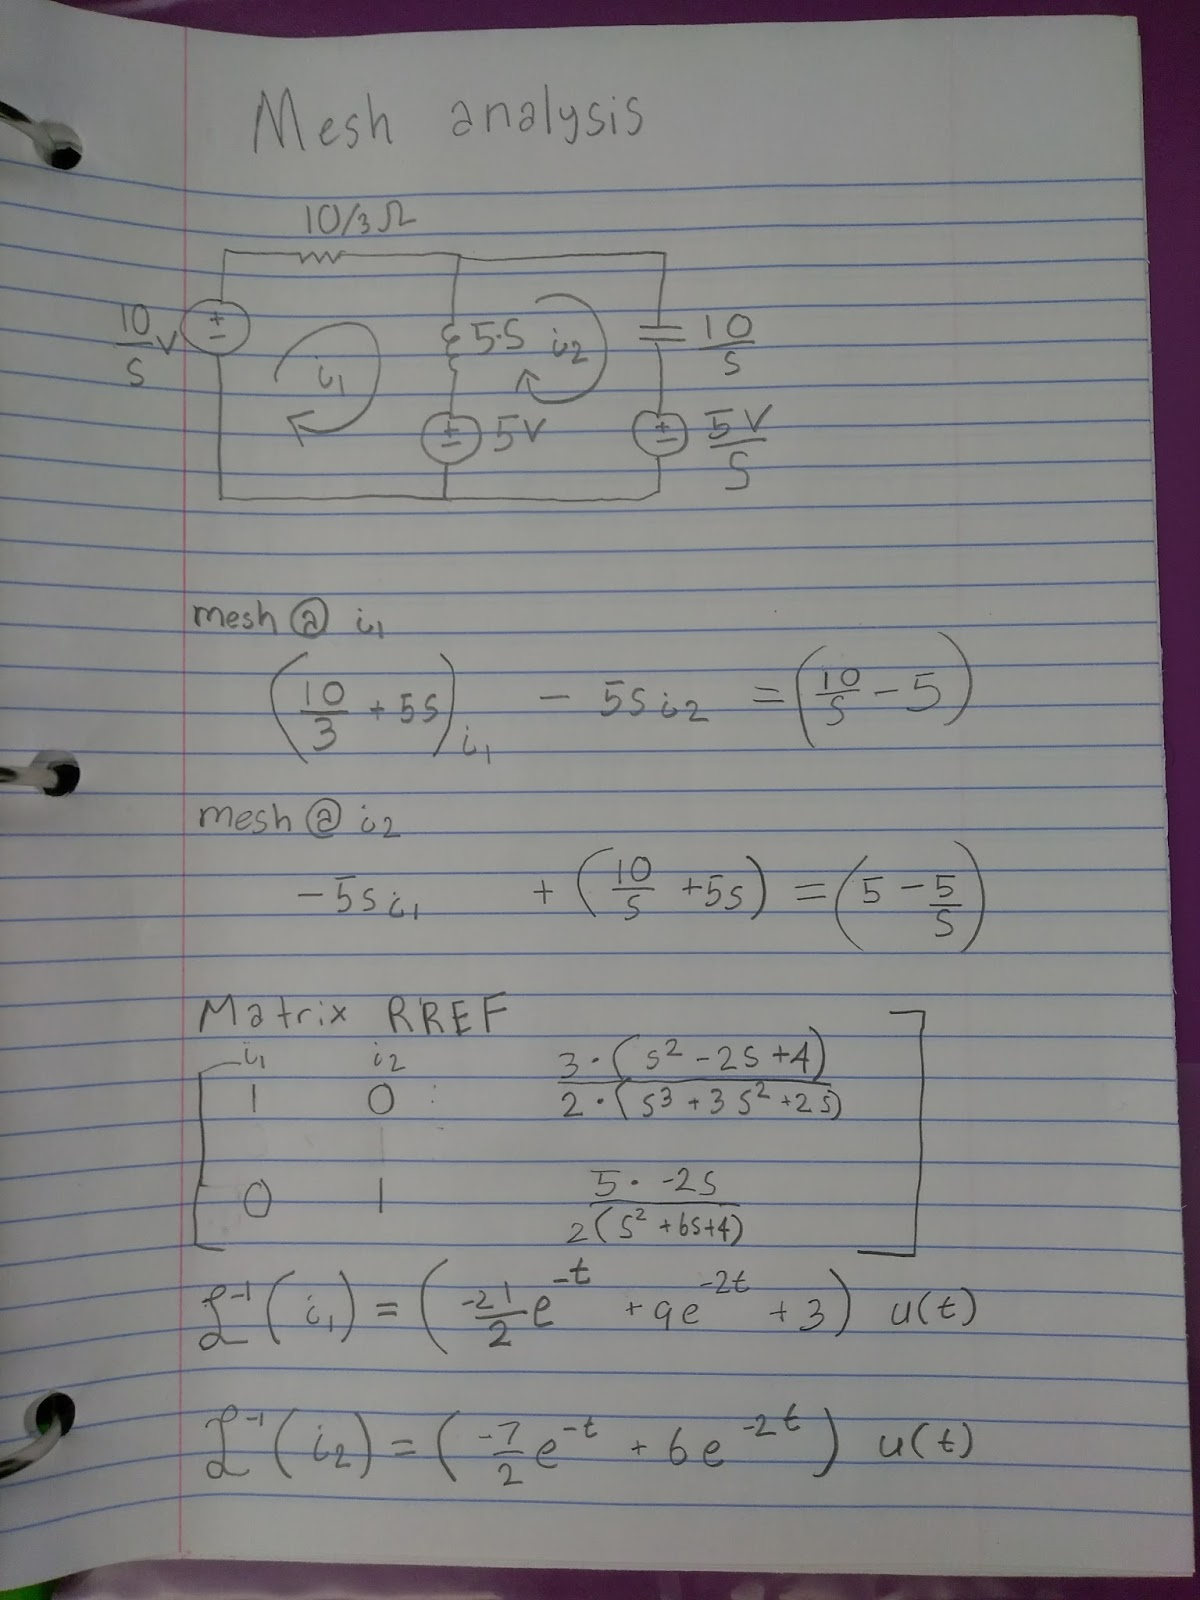 Mesh analysis
10/3Ω
10/S V
+ -
i1
5·S
i2
10/S
+ -
5V
+ -
5V/S
mesh @ i1
(10/3 + 5S) i1 - 5S i2 = (10/S - 5)
mesh @ i2
-5S i1 + (10/S + 5S) = (5 - 5/S)
Matrix RREF
i1 i2
1 0 3·(S² - 2S + 4) / 2·(S³ + 3S² + 2S)
0 1 5·-2S / 2(S² + 6S + 4)
ℒ⁻¹(i1) = (-21/2 e^-t + 9e^-2t + 3) u(t)
ℒ⁻¹(i2) = (-7/2 e^-t + 6e^-2t) u(t)